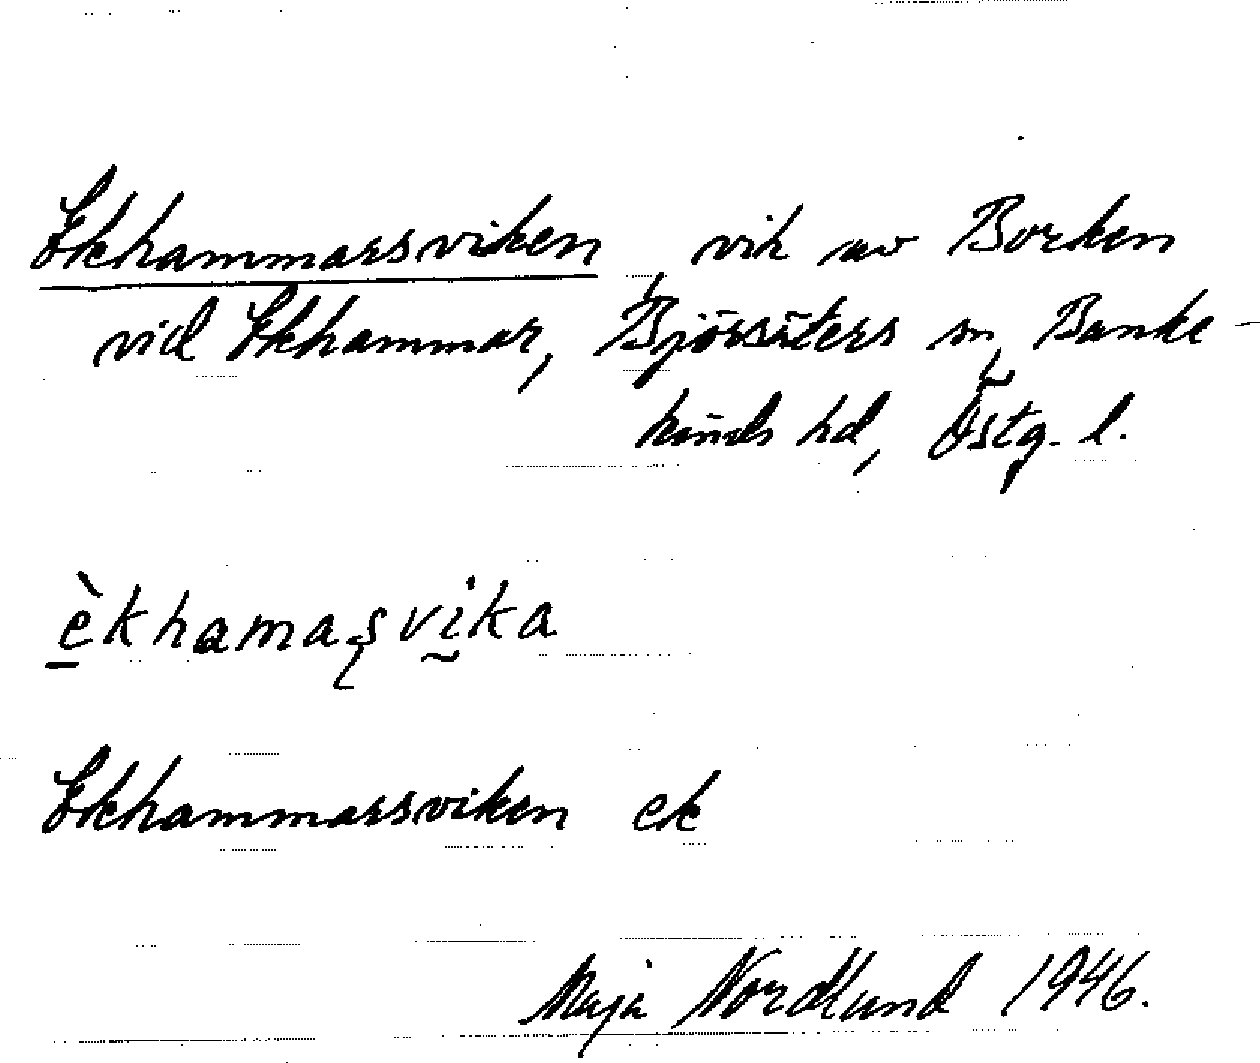 Ekhammarsviken, vik av Borken
vid Ekhammar, Björsäters sn, Banke-
kinds hd, Östg. l.
èkhamaşvika
Ekhammarsviken ek
Maja Nordlund 1946.